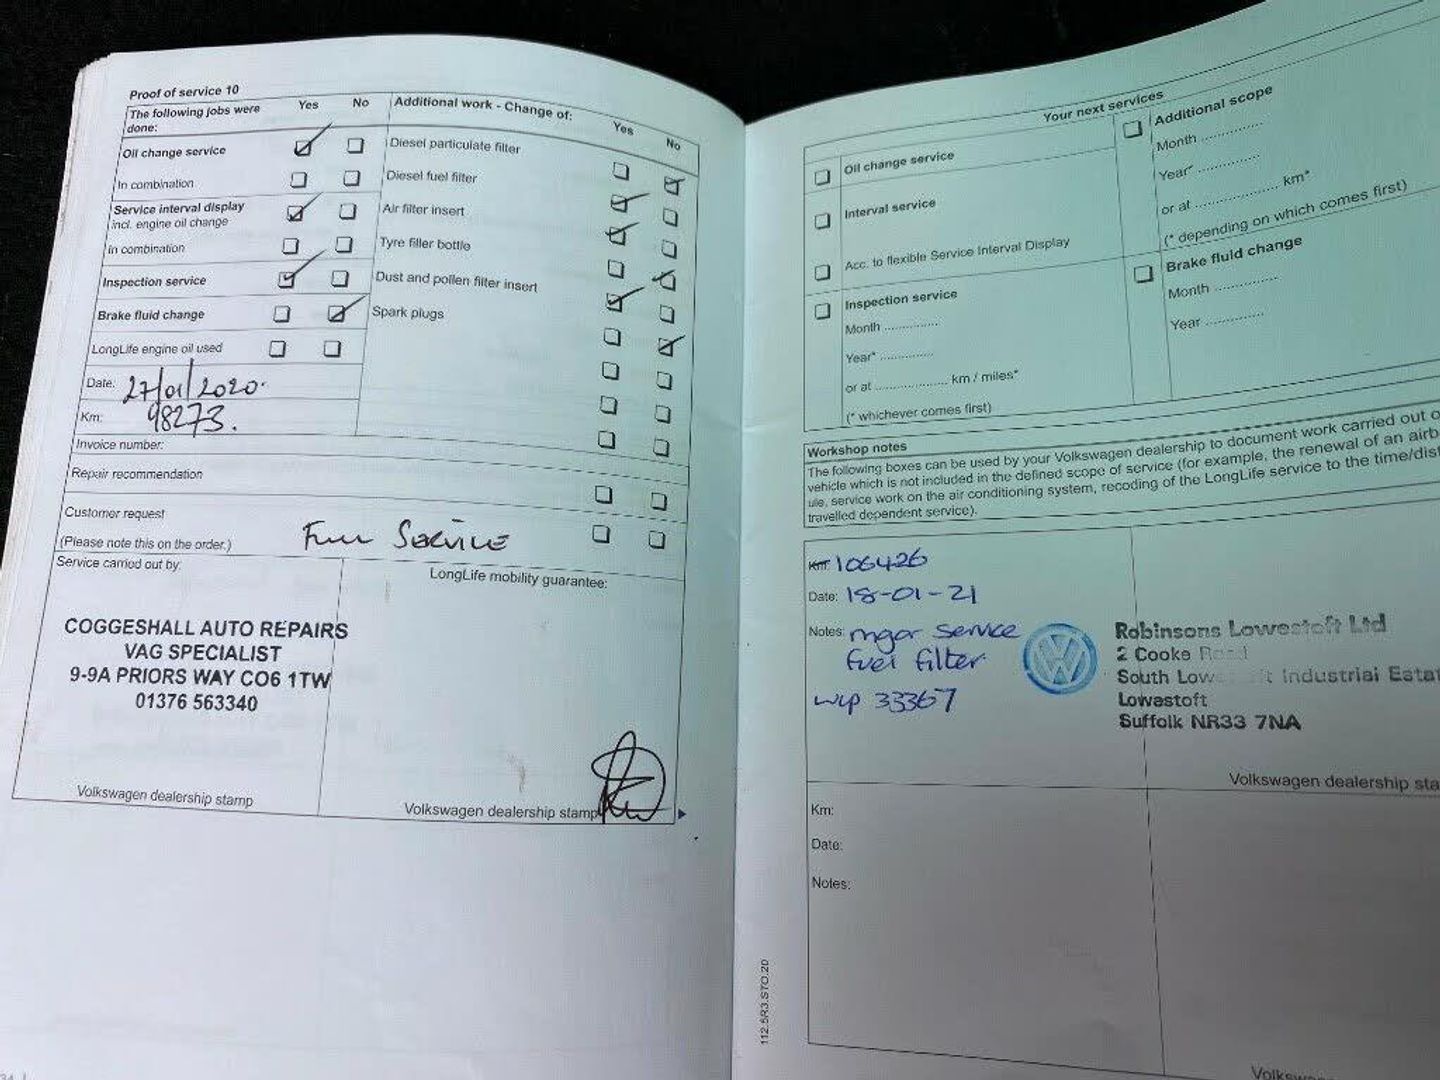 Proof of service 10
The following jobs were done: Yes No
Oil change service
In combination
Service interval display
incl. engine oil change
In combination
Inspection service
Brake fluid change
LongLife engine oil used
Date: 27/01/2020.
Km: 98273.
Additional work - Change of: Yes No
Diesel particulate filter
Diesel fuel filter
Air filter insert
Tyre filler bottle
Dust and pollen filter insert
Spark plugs
Invoice number:
Repair recommendation
Customer request
(Please note this on the order.)
Full Service
Service carried out by:
COGGESHALL AUTO REPAIRS
VAG SPECIALIST
9-9A PRIORS WAY CO6 1TW
01376 563340
Volkswagen dealership stamp
LongLife mobility guarantee:
Volkswagen dealership stamp
Your next services
Oil change service
Interval service
Acc. to flexible Service Interval Display
Inspection service
Month ..............
Year* ..............
or at .................... km / miles*
(* whichever comes first)
Additional scope
Month ..............
Year* ..............
or at .................... km*
(* depending on which comes first)
Brake fluid change
Month ..............
Year ..............
Workshop notes
The following boxes can be used by your Volkswagen dealership to document work carried out o
vehicle which is not included in the defined scope of service (for example, the renewal of an airb
ule, service work on the air conditioning system, recoding of the LongLife service to the time/dist
travelled dependent service).
Km: 106426
Date: 18-01-21
Notes: major service
fuel filter
wip 33367
Robinsons Lowestoft Ltd
2 Cooke Road
South Lowestoft Industrial Estat
Lowestoft
Suffolk NR33 7NA
Volkswagen dealership sta
Km:
Date:
Notes:
112.5R3.STO.20
Volksw